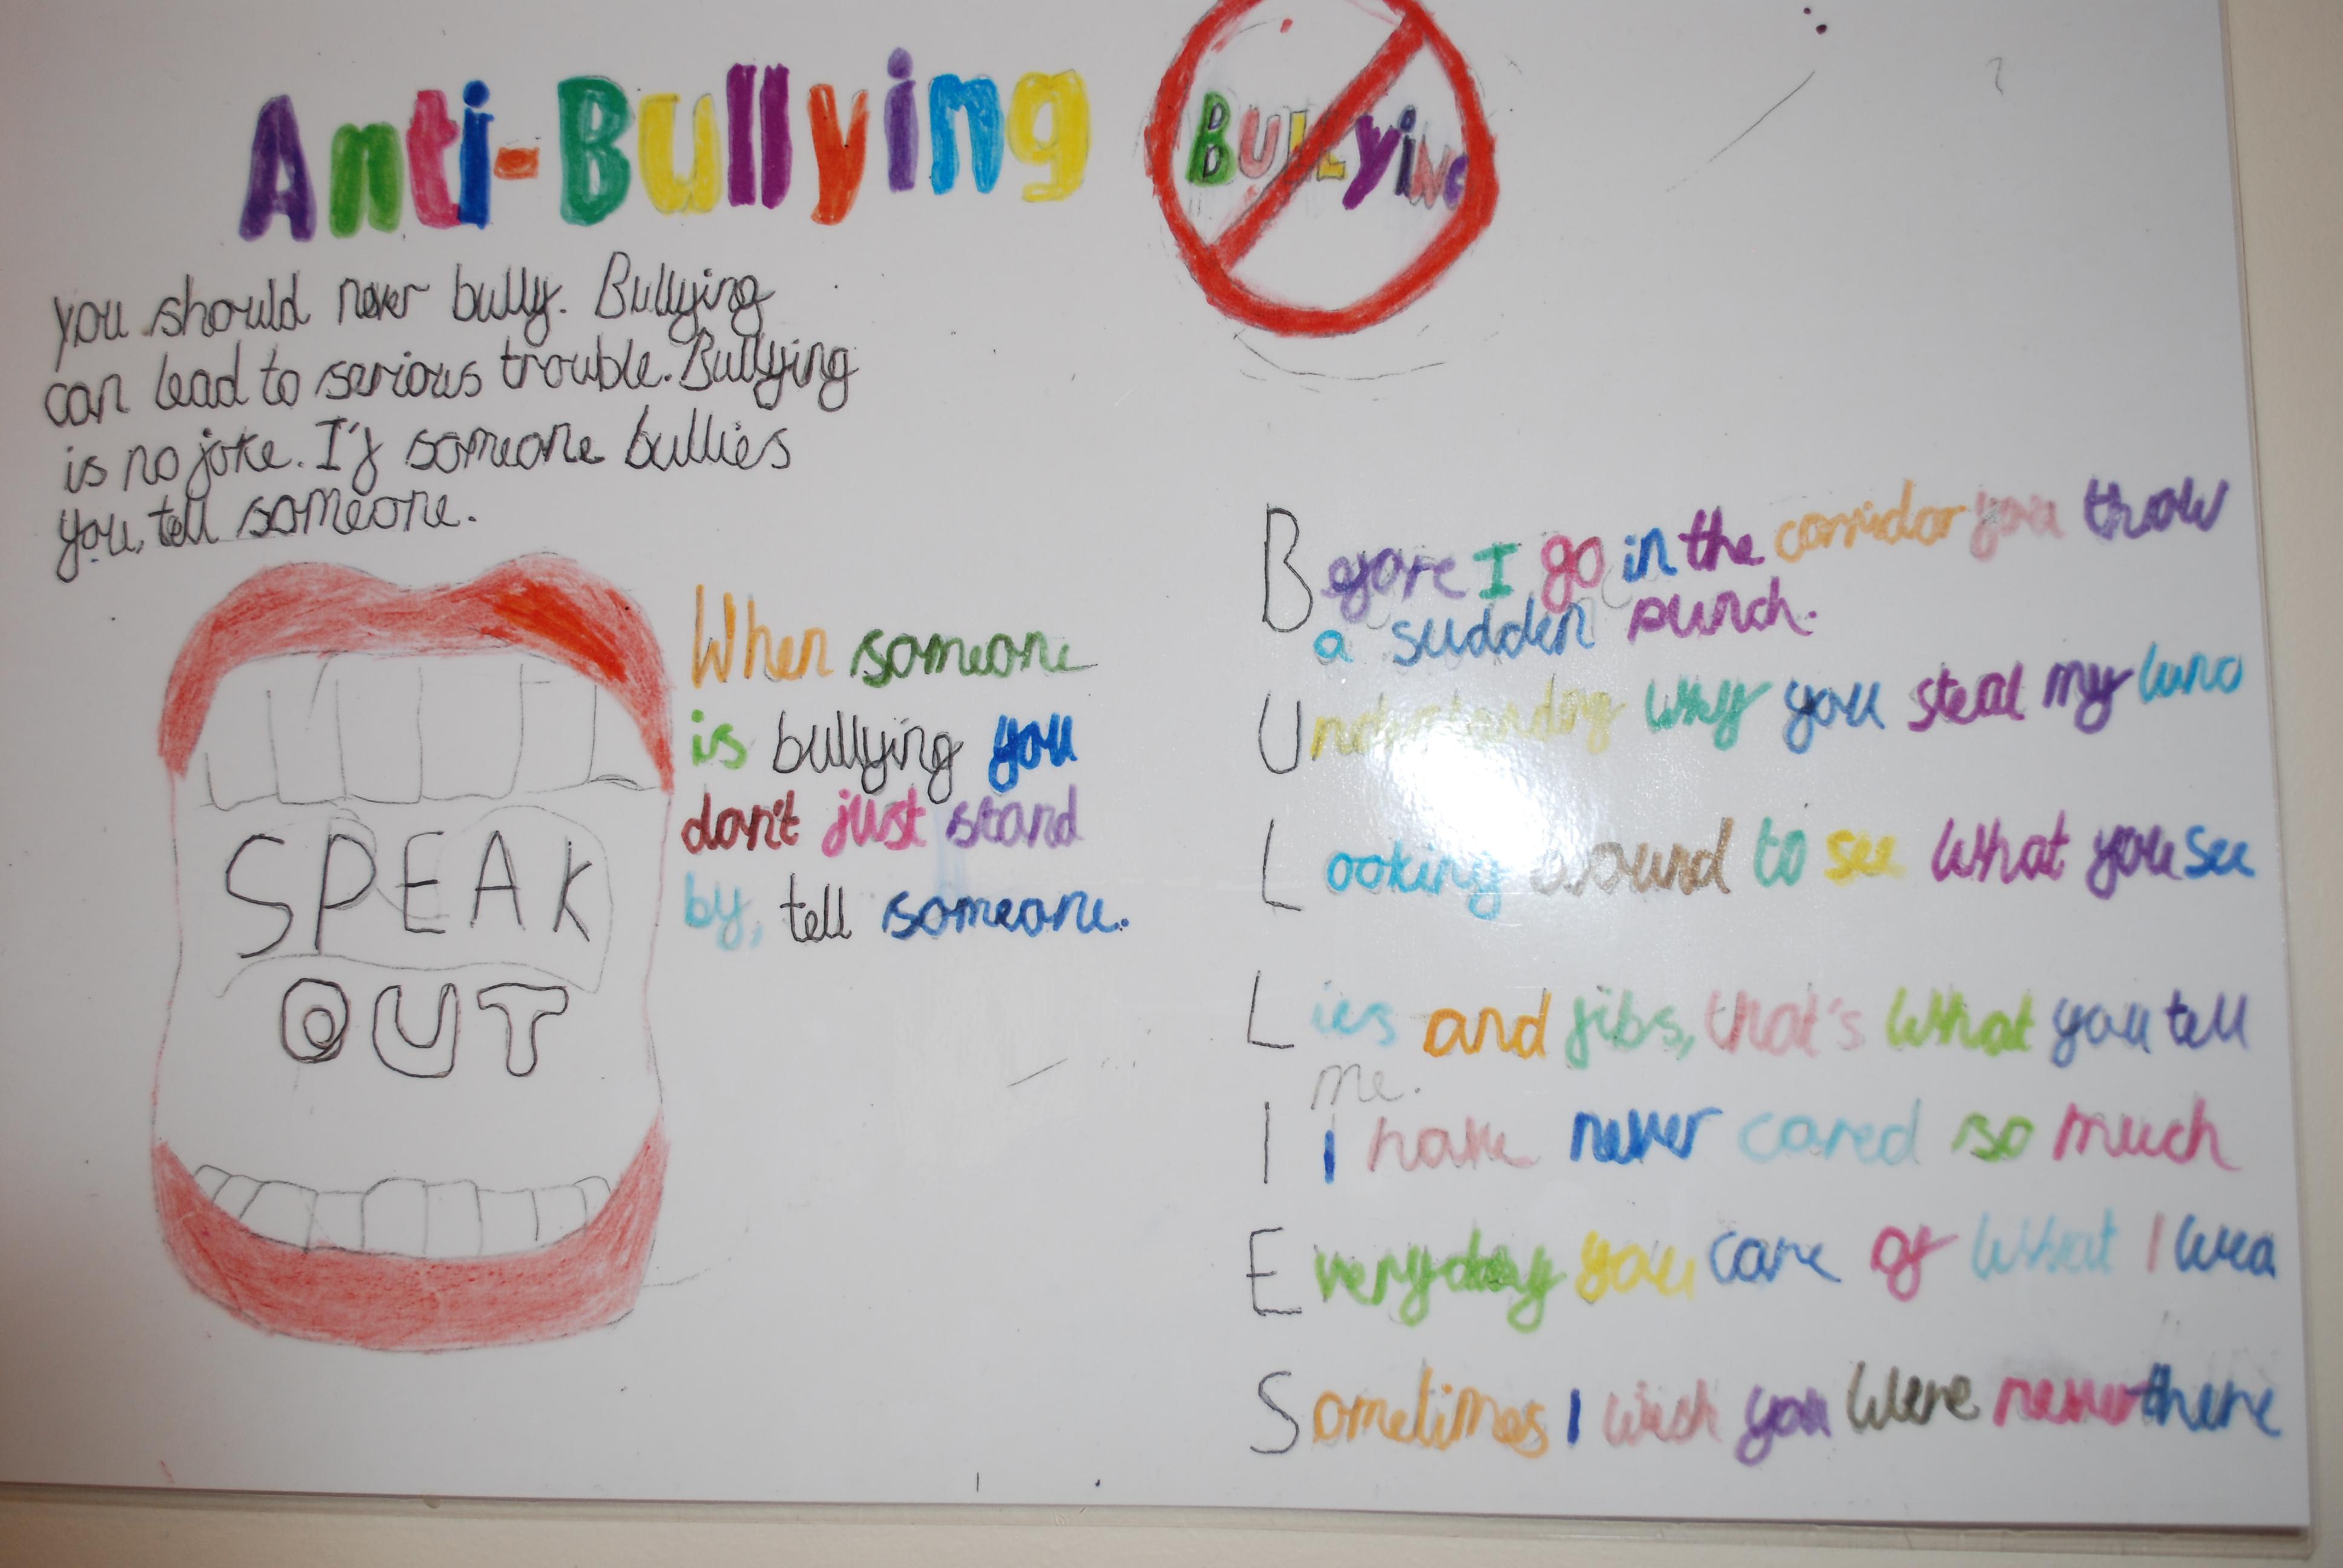 Anti-Bullying
BULLYiNG
you should never bully. Bullying
can lead to serious trouble. Bullying
is no joke. I'f someone bullies
you, tell someone.
When someone
is bullying you
don't just stand
by, tell someone.
SPEAK
OUT
Before I go in the corridor you throw
a sudden punch.
Understanding why you steal my
Looking around to see what you see
Lies and fibs, that's what you tell
me.
I I have never cared so much
Everyday you care of what I wea
Sometimes I wish you were never there